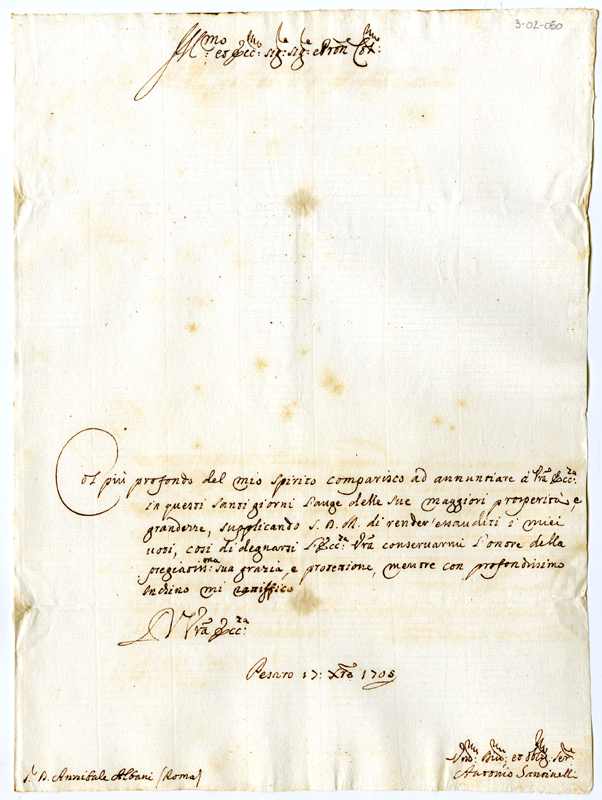 3-02-050
Ill.mo et Ecc.mo Sig.re Sig.re e Pron Col.mo
Col più profondo del mio spirito comparisco ad annuntiare à Vrã Ecc.za
in questi santi giorni l'auge delle sue maggiori prosperità, e
grandezze, supplicando S. D. M. di render esauditi i miei
voti, così di degnarsi l'Ecc.za Vrã conservarmi l'onore della
pregiatiss.ma sua grazia, e protezione, mentre con profondissimo
Inchino mi
Di Vrã Ecc.za
Pesaro 17: Xbre 1705
Antonio Santinelli
S.r D. Annibale Albani (Roma)